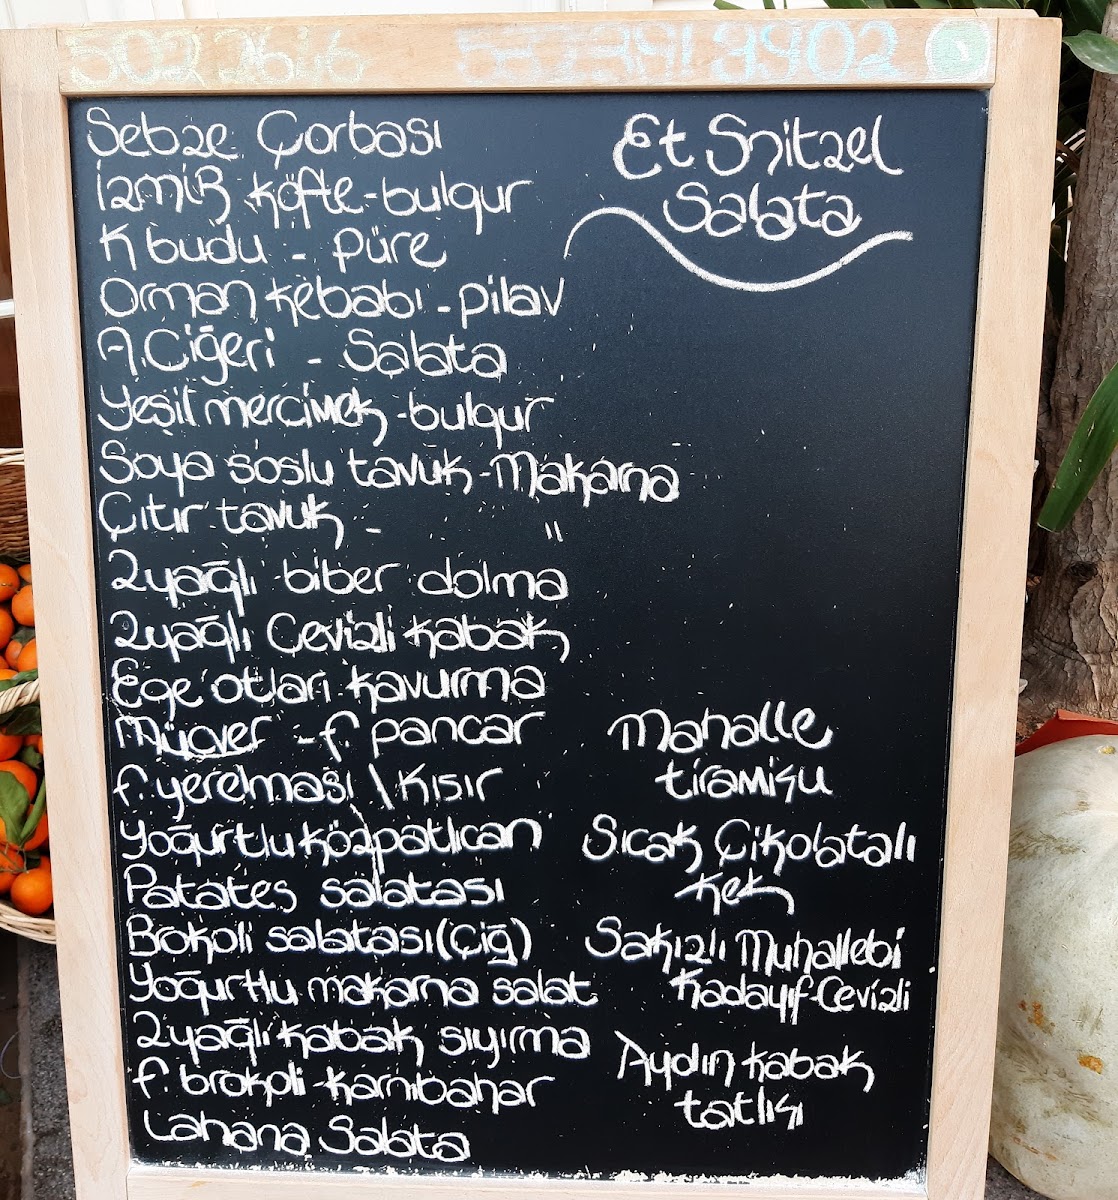 502 2616
Sebze Çorbası
İzmir köfte-bulgur
K budu - püre
Orman kebabı-pilav
A.Ciğeri - Salata
Yeşil mercimek-bulgur
Soya soslu tavuk-Makarna
Çıtır tavuk - "
Zyağlı biber dolma
Zyağlı Cevizli kabak
Ege otları kavurma
Mücver - f. pancar
f. yerelması \ Kısır
Yoğurtlu közpatlıcan
Patates salatası
Brokoli salatası (Çiğ)
Yoğurtlu makarna salat
Zyağlı kabak sıyırma
f. brokoli-karnıbahar
Lahana Salata
Et Snitzel
Salata
Mahalle
tiramisu
Sıcak Çikolatalı
Kek
Sakızlı Muhallebi
Kadayıf-Cevizli
Aydın kabak
tatlısı